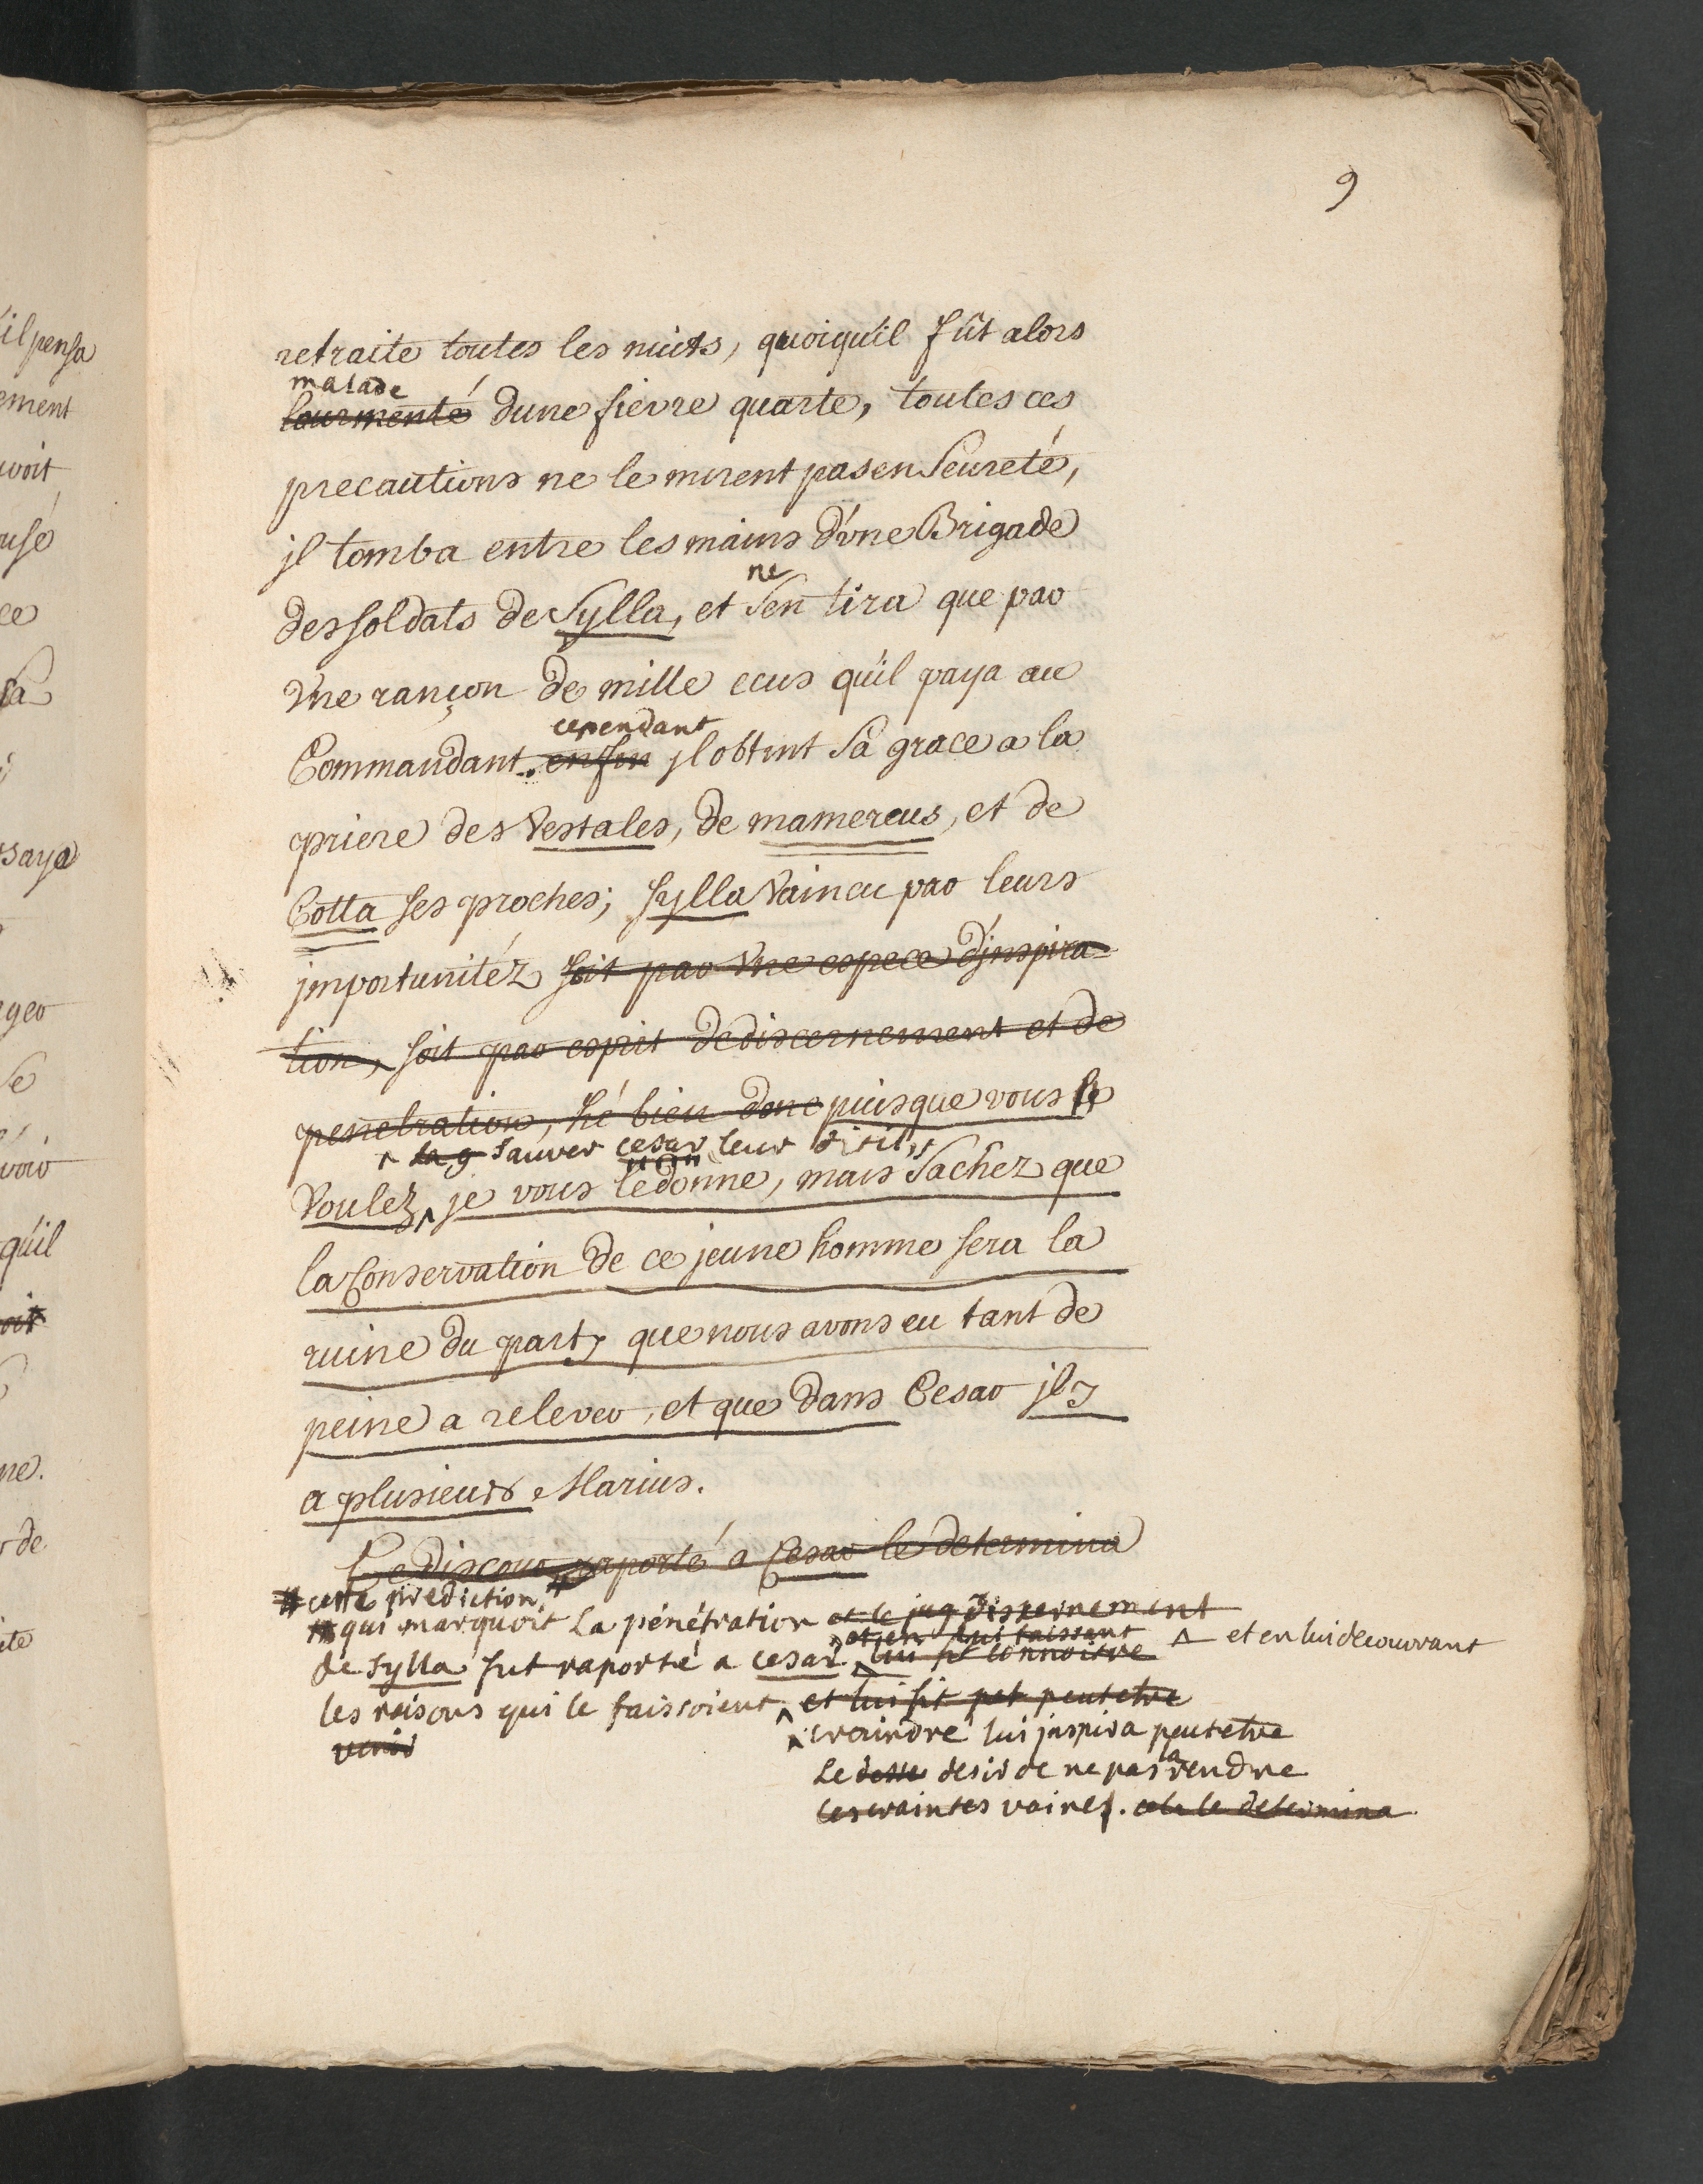 9
retraite toutes les nuits, quoiqu'il fût alors
malade
tourmenté dune fievre quarte, toutes ces
precautions ne le mirent pas en Seureté,
jl tomba entre les mains d'vne Brigade
ne
des soldats de Sylla, et Sen tira que par
Vne rançon de mille ecus qu'il paya au
cependant
Commandant. enfin jl obtint Sa grace a la
priere des Vestales, de mamercus, et de
Cotta ses proches; Sylla Vaincu par leurs
jmportunitéz soit par Vne espece d'jnspira-
tion, soit par esprit de discernement et de
penetration, hé bien donc puisque vous le
la g sauver cesar leur dit il,
Voulez je vous le donne, mais Sachez que
la Conservation de ce jeune homme sera la
ruine du party que nous avons eu tant de
peine a relever, et que dans Cesar jl y
a plusieurs Marius.
Ce discours raporté a Cesar le determina
cette prediction
qui marquoit la pénétration et le jug discernement
et en lui faisant et en lui decouvrant
de Sylla fut raporté a cesar lui fit connoitre
les raisons qui le faissoient et lui fit pet peutetre
venir
craindre lui jnspira peutetre
la
Le desse desir de ne pas rendre
ces craintes vaines. cela le determina
il pensa
ement
voit
usé
ce
sa
saya
ger
se
voir
qu'il
oit
ne.
r de
ite